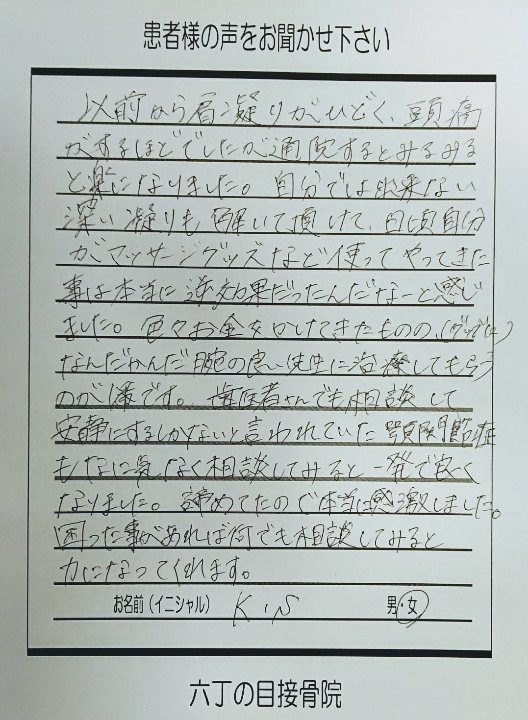 患者様の声をお聞かせ下さい
以前から肩凝りがひどく、頭痛
がするほどでしたが通院するとみるみる
と楽になりました。自分では出来ない
深い凝りも解いて頂けて、日頃自分
がマッサージグッズなど使ってやってきた
事は本当に逆効果だったんだなーと感じ
ました。色々お金を出してきたものの、(グッズに)
なんだかんだ腕の良い先生に治療してもらう
のが1番です。歯医者さんでも相談して
安静にするしかないと言われていた顎関節症
もなに気なく相談してみると一発で良く
なりました。諦めてたので本当に感激しました。
困った事があれば何でも相談してみると
力になってくれます。
お名前(イニシャル) K・S 男・女
六丁の目接骨院